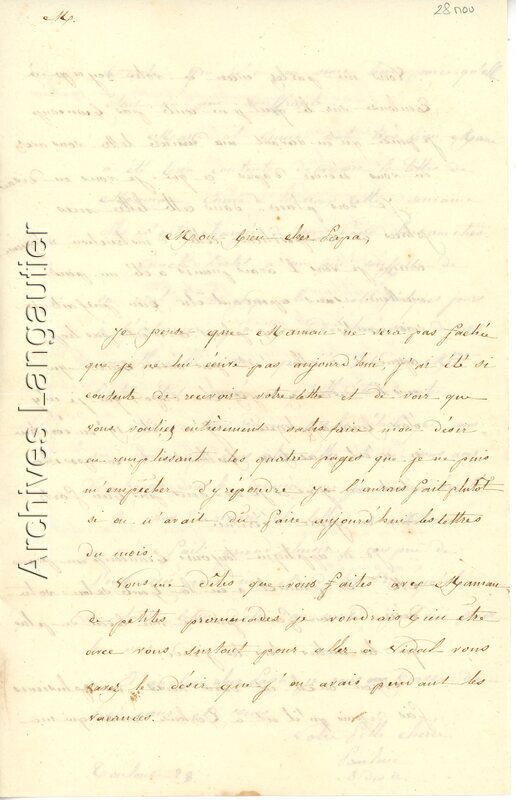 M.
28 nov
Archives Langautier
Mon bien cher Papa,
Je pense que Maman ne sera pas fachée
que je ne lui écrive pas aujourd'hui, j'ai été si
contente de recevoir votre lettre et de voir que
vous vouliez entièrement satisfaire mon désir
en remplissant les quatre pages que je ne puis
m'empécher d'y répondre je l'aurais fait plutot
si on n'avait du faire aujourd'hui les lettres
du mois.
Vous me dîtes que vous faites avec Maman
de petites promenades je voudrais bien être
avec vous surtout pour aller à Vidal vous
savez le désir que j'en avais pendant les
vacances.